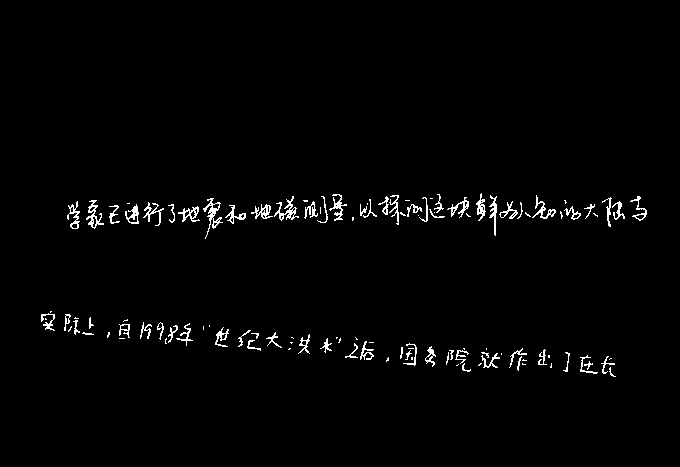 学家已进行了地震和地磁测量,以探测这块鲜为人知的大陆与
实际上,自1998年“世纪大洪水”之后,国务院就作出了在长